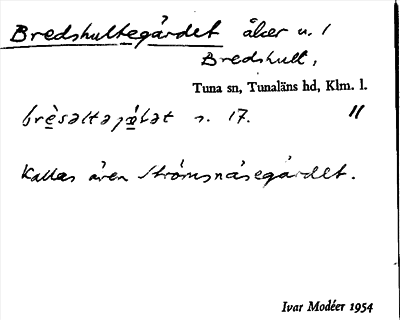 Bredshultegärdet åker u. 1
Bredshult,
Tuna sn, Tunaläns hd, Klm. l.
s. 17. "
Kallas även Strömsnäsegärdet.
Ivar Modéer 1954